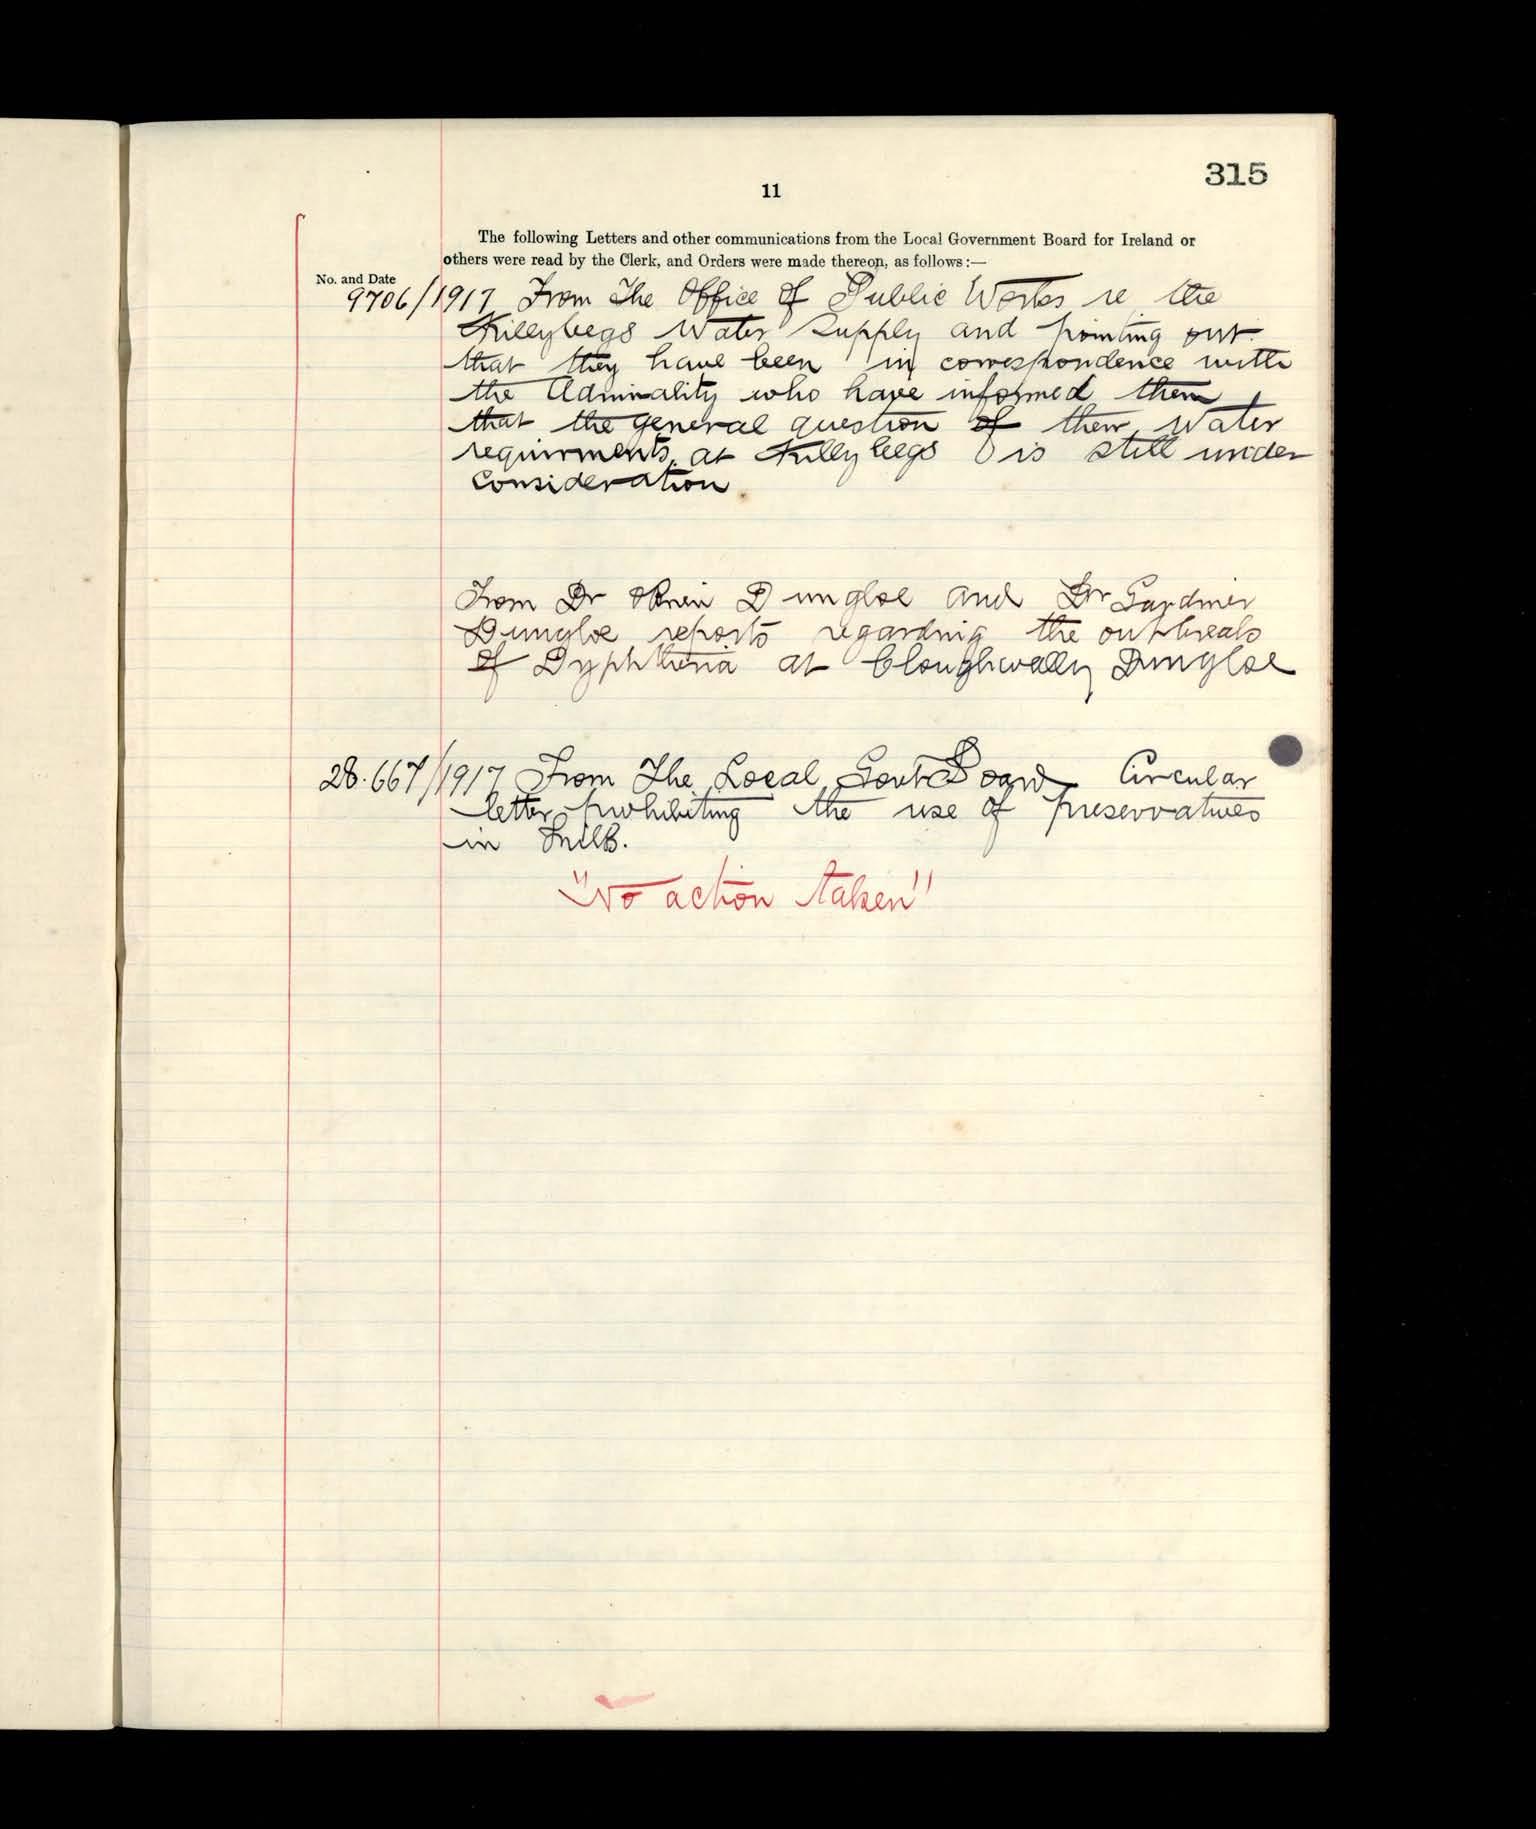 315
11
The following Letters and other communications from the Local Government Board for Ireland or
others were read by the Clerk, and Orders were made thereon, as follows:—
No. and Date
9706/1917 From The Office of Public Works re the
Killybegs Water Supply and pointing out
that they have been in correspondence with
the Admirality who have informed them
that the general question of their Water
requirments at Killybegs is still under
Consideration.
From Dr Dungloe and Dr Gardiner
Dungloe reports regarding the outbreak
of Dyphtheria at Cloughwally Dungloe
28.667/1917 From The Local Govt Board Circular
letter prohibiting the use of preservatives
in Milk.
"No action taken"